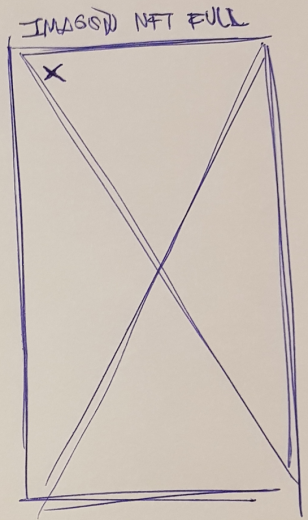 IMAGEN NFT FULL
X